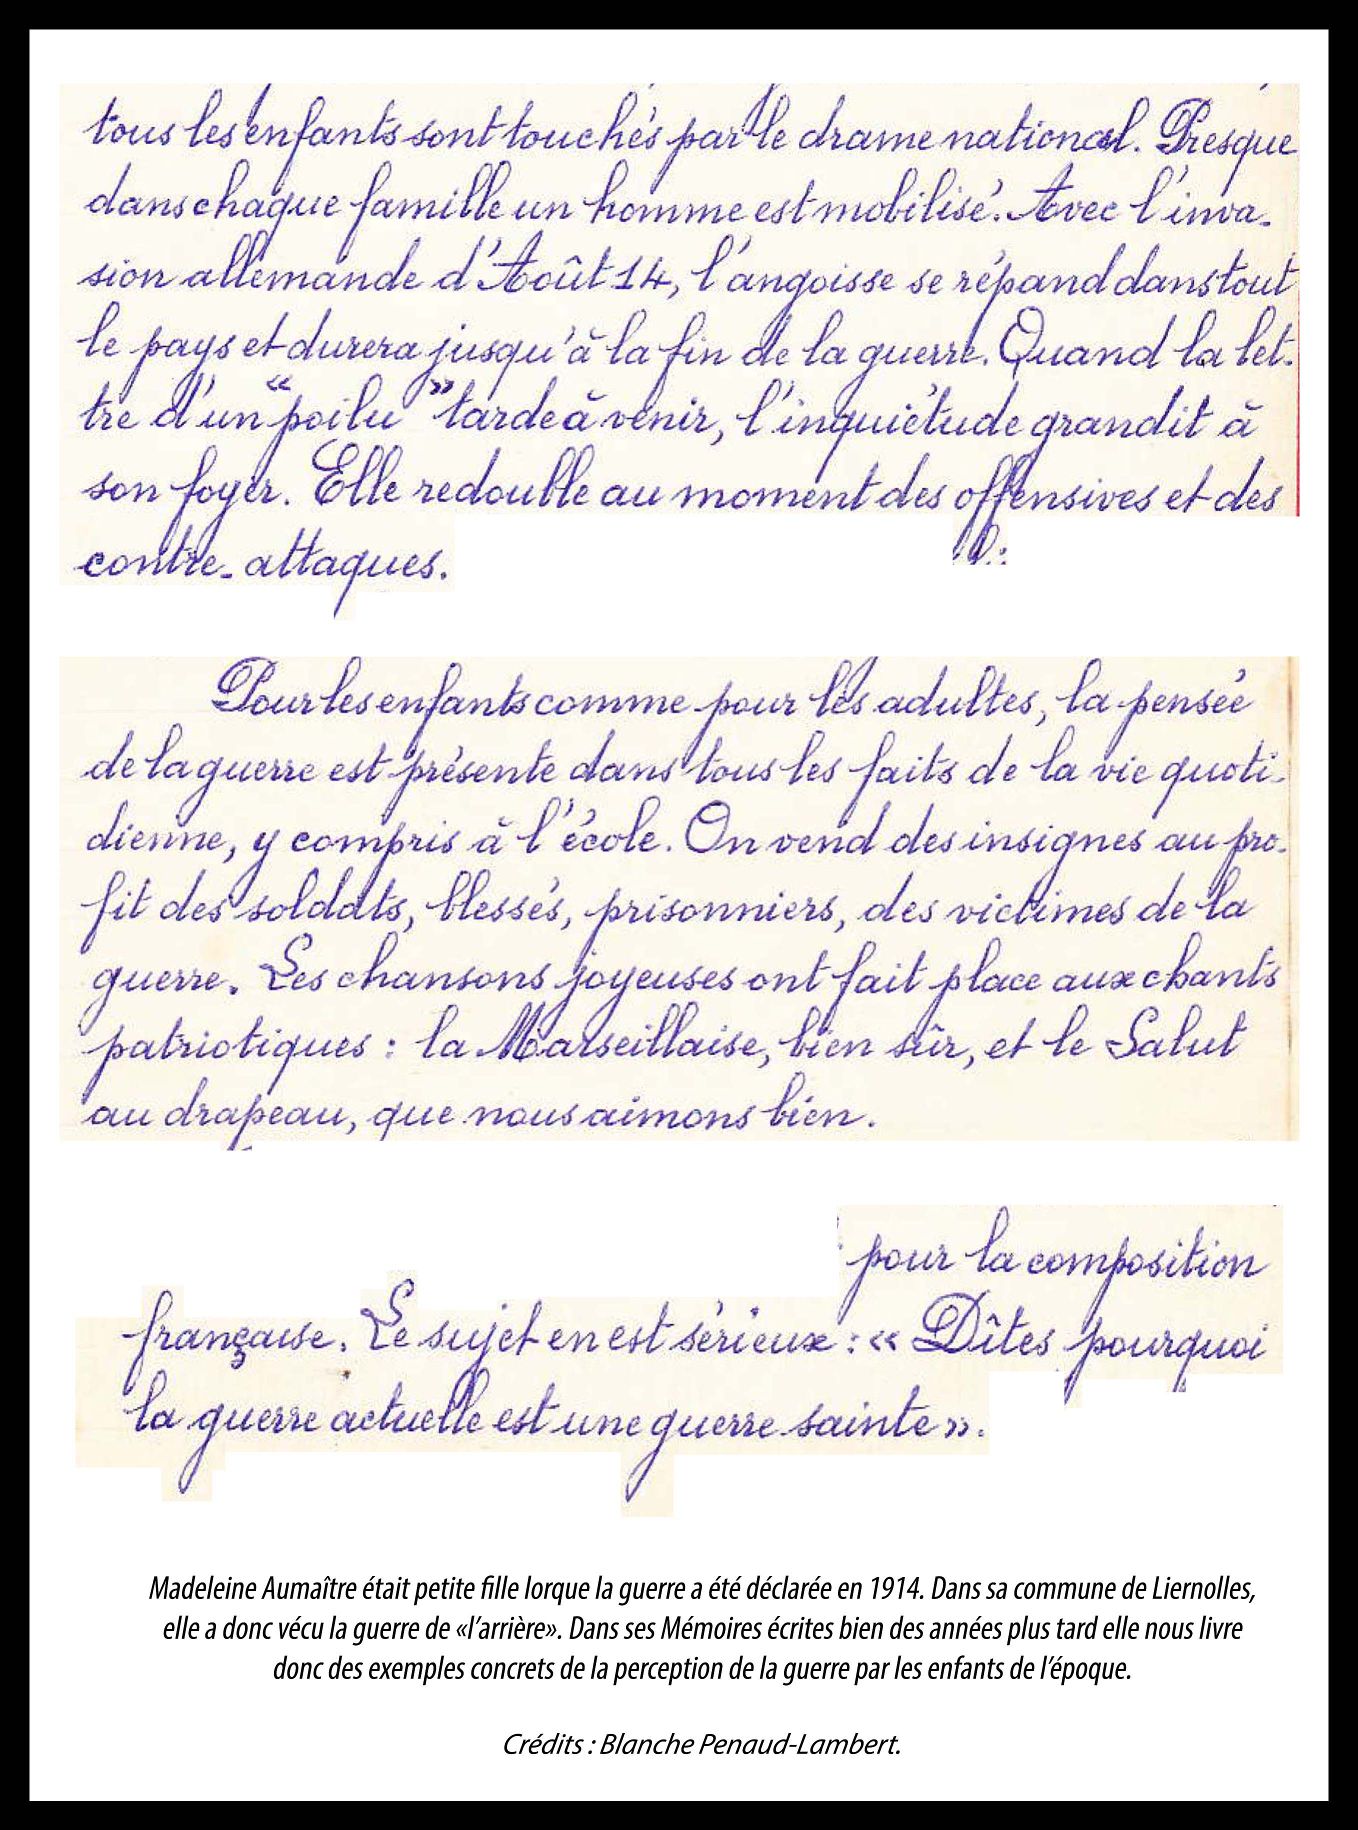 tous les enfants sont touchés par le drame national. Presque
dans chaque famille un homme est mobilisé. Avec l'inva-
sion allemande d'Août 14, l'angoisse se répand dans tout
le pays et durera jusqu'à la fin de la guerre. Quand la let-
tre d'un "poilu" tarde à venir, l'inquiétude grandit à
son foyer. Elle redouble au moment des offensives et des
contre-attaques.
Pour les enfants comme pour les adultes, la pensée
de la guerre est présente dans tous les faits de la vie quoti-
dienne, y compris à l'école. On vend des insignes au pro-
fit des soldats, blessés, prisonniers, des victimes de la
guerre. Les chansons joyeuses ont fait place aux chants
patriotiques : la Marseillaise, bien sûr, et le Salut
au drapeau, que nous aimons bien.
pour la composition
française. Le sujet en est sérieux : « Dîtes pourquoi
la guerre actuelle est une guerre sainte ».
Madeleine Aumaître était petite fille lorque la guerre a été déclarée en 1914. Dans sa commune de Liernolles,
elle a donc vécu la guerre de «l'arrière». Dans ses Mémoires écrites bien des années plus tard elle nous livre
donc des exemples concrets de la perception de la guerre par les enfants de l'époque.
Crédits : Blanche Penaud-Lambert.